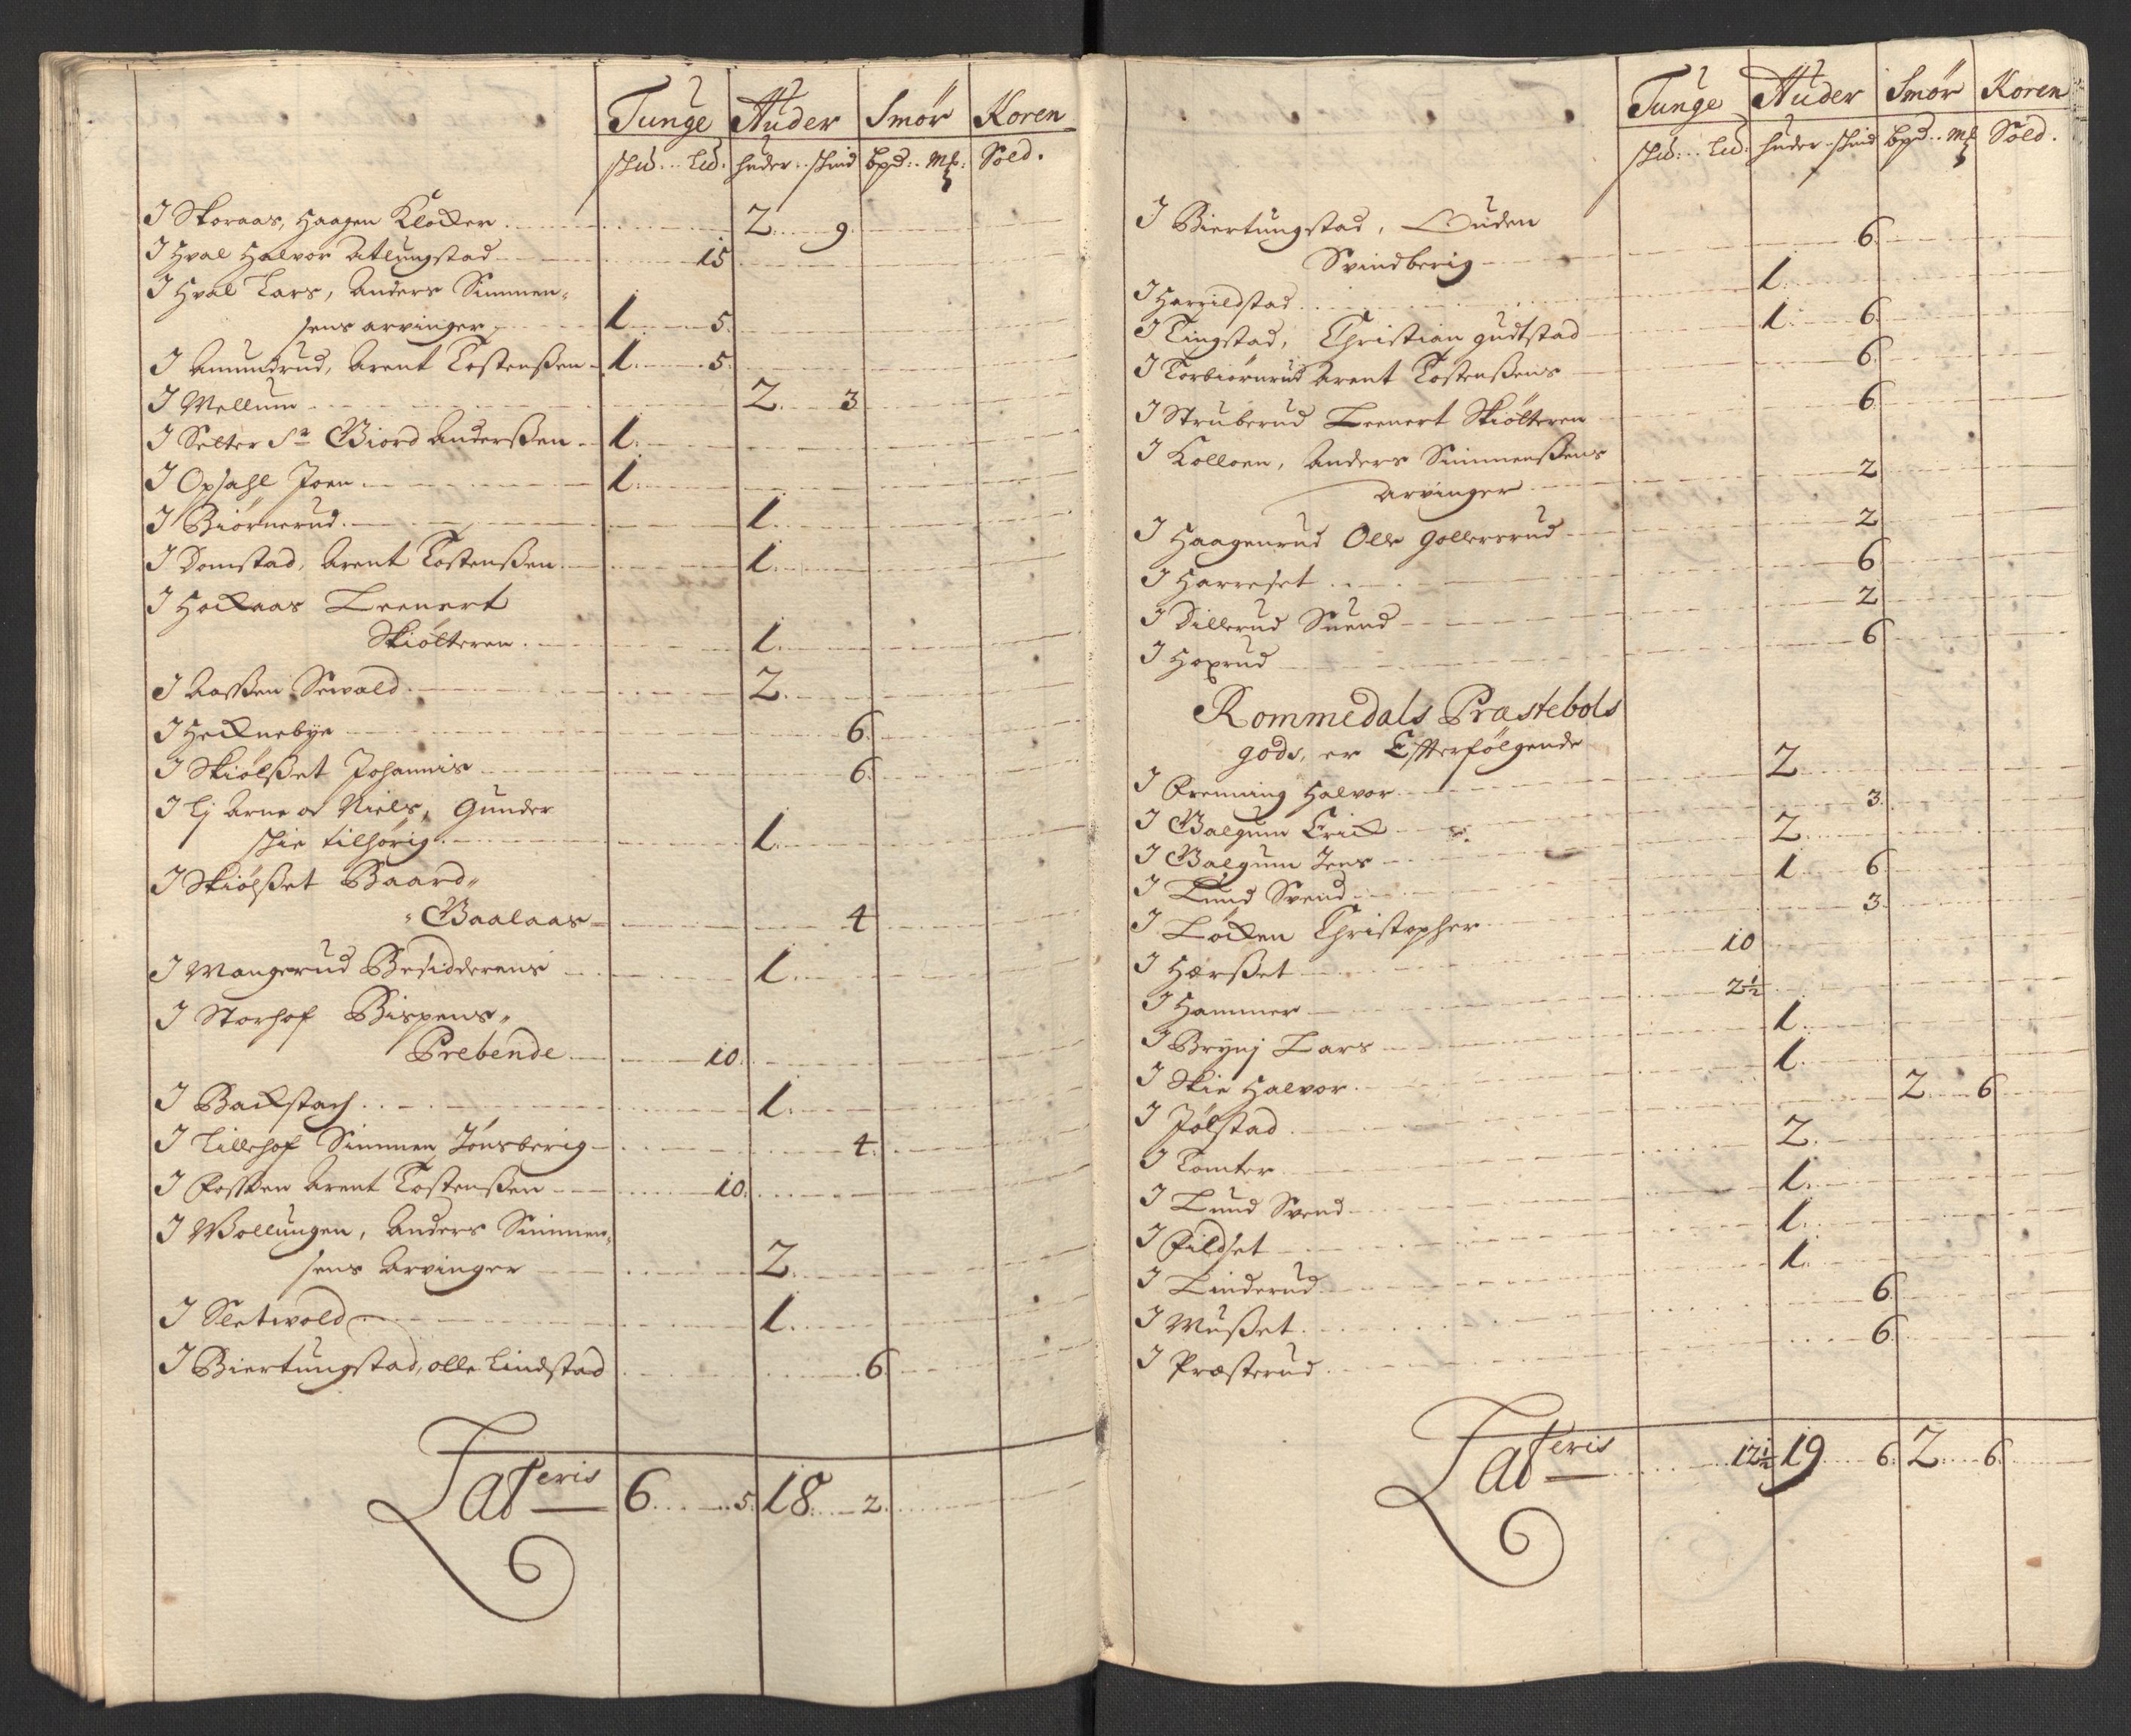 Tunge Huder Smør Koren
skĩĩ: . . Lĩĩ: huder . . skind bpd: . . Mk: Sold.
I Skoraas, Haagen Klocker . 2 . . 9
I Hval Halvor Atlungstad 15
I Hval Lars, Anders Simmen-
sens arvinger, 1 . . 5
I Amundrud, Arent Tostenßen 1 . . 5
I Mellum 2 . . 3
I Selter Sr Giord Anderßen 1
I Opsahl Joen 1
I Biørnerud 1
I Domstad, Arent Tostenßen 1
I Hockaas Leenert
Skiølteren . 1
I Aaßen Sewald 2
I Hecknebye 6
I Skiølßet Johannis 6
I Lj Arne og Niels, Gunder
skie tilhørig 1
I Skiølßet Baard„
„Gaalaas 4
I Mangerud Besidderens 1
I Storhof Bispens„
Prebende 10
I Backstach 1
I Lillehof Simmen Tønsberig 4
I Foßen Arent Tostenßen 10
I Wollungen, Anders Simmen„
sens Arvinger 2
I Sletwold 1
I Biertungstad, olle Lindstad 6
Lateris 6 . . 5 18 . . 2
Tunge Huder Smør Koren
skĩĩ: . . Lĩĩ: huder . skind bpd: . . Mk Sold.
I Biertungstad, Ouden
Svindberig 6
I Harrildstad 1
I Tingstad, Christian gudtstad 1 . . 6
I Torbiørnrud Arent Tostenßens 6
I Struberud Leenert Skiølteren 6
I Kolloen, Anders Simmenßens
Arvinger 2
I Haagenrud Olle Gollersrud 2
I Harreset 6
I Dillerud Svend 2
I Hoxrud 6
Rommedals Præstebols
gods, er Efterfølgende
I Frenning Halvor 2
I Galgum Erick 3
I Galgum Jens 2
I Lund Svend 1 . . 6
I Løcken Christopher 3
I Hørßet 10
I Hammer 2½
I Brynj Lars 1
I Skie Halvor 1
I Jølstad 2 . . 6
I Tomter 2
I Lund Svend 1
I Fildset 1
I Linderud 1
I Mußet 6
I Præsterud 6
Lateris 12½ 19 . . 6 2 . . 6